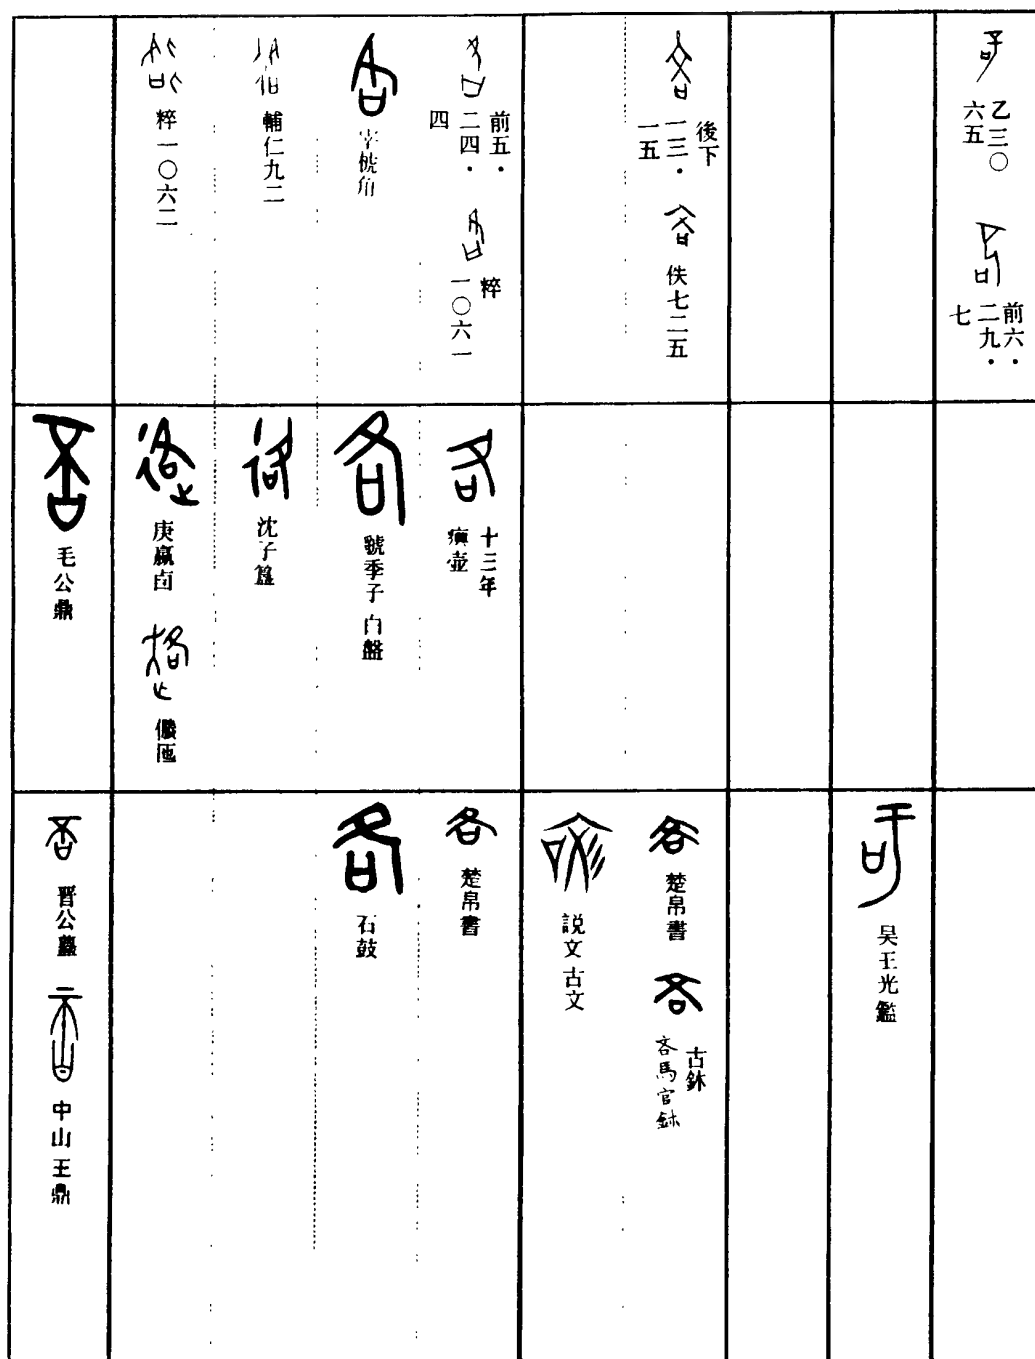 乙三〇
六五
前六・
二九・
七
後下
一三・
一五
佚七二五
前五・
二四・
四
粹
一〇六一
宰椃角
輔仁九二
粹一〇六二
十三年
𤼈壺
虢季子白盤
沈子簋
庚嬴卣
儠匜
毛公鼎
吴王光鑑
楚帛書
古鉢
吝馬官鉢
説文古文
楚帛書
石鼓
晋公𥂴
中山王鼎